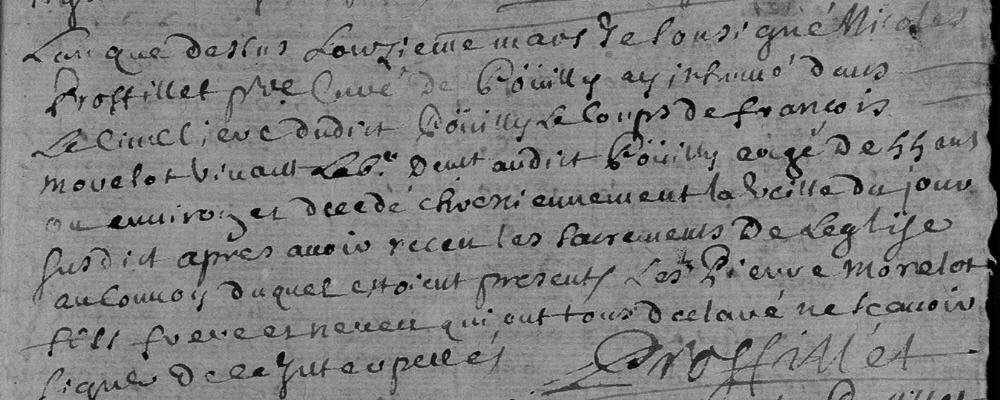 L'an que dessus Lonzieme mars Je soussigné Nicolas
Proffillet pbre Curé de Poüilly ay inhumé dans
Le cimetiere dudict Poüilly Le corps de françois
morelot vivant Lab.r demt audict Poüilly aagé De 55 ans
ou environ et decedé chrestiennement la veille du jour
susdict apres avoir receu les sacrements De Leglise
au Convoy duquel estoient presents Les Pierre Morelot
fils frere et neveu qui ont tous declaré ne scavoir
signer de ce Interpellés Proffillét